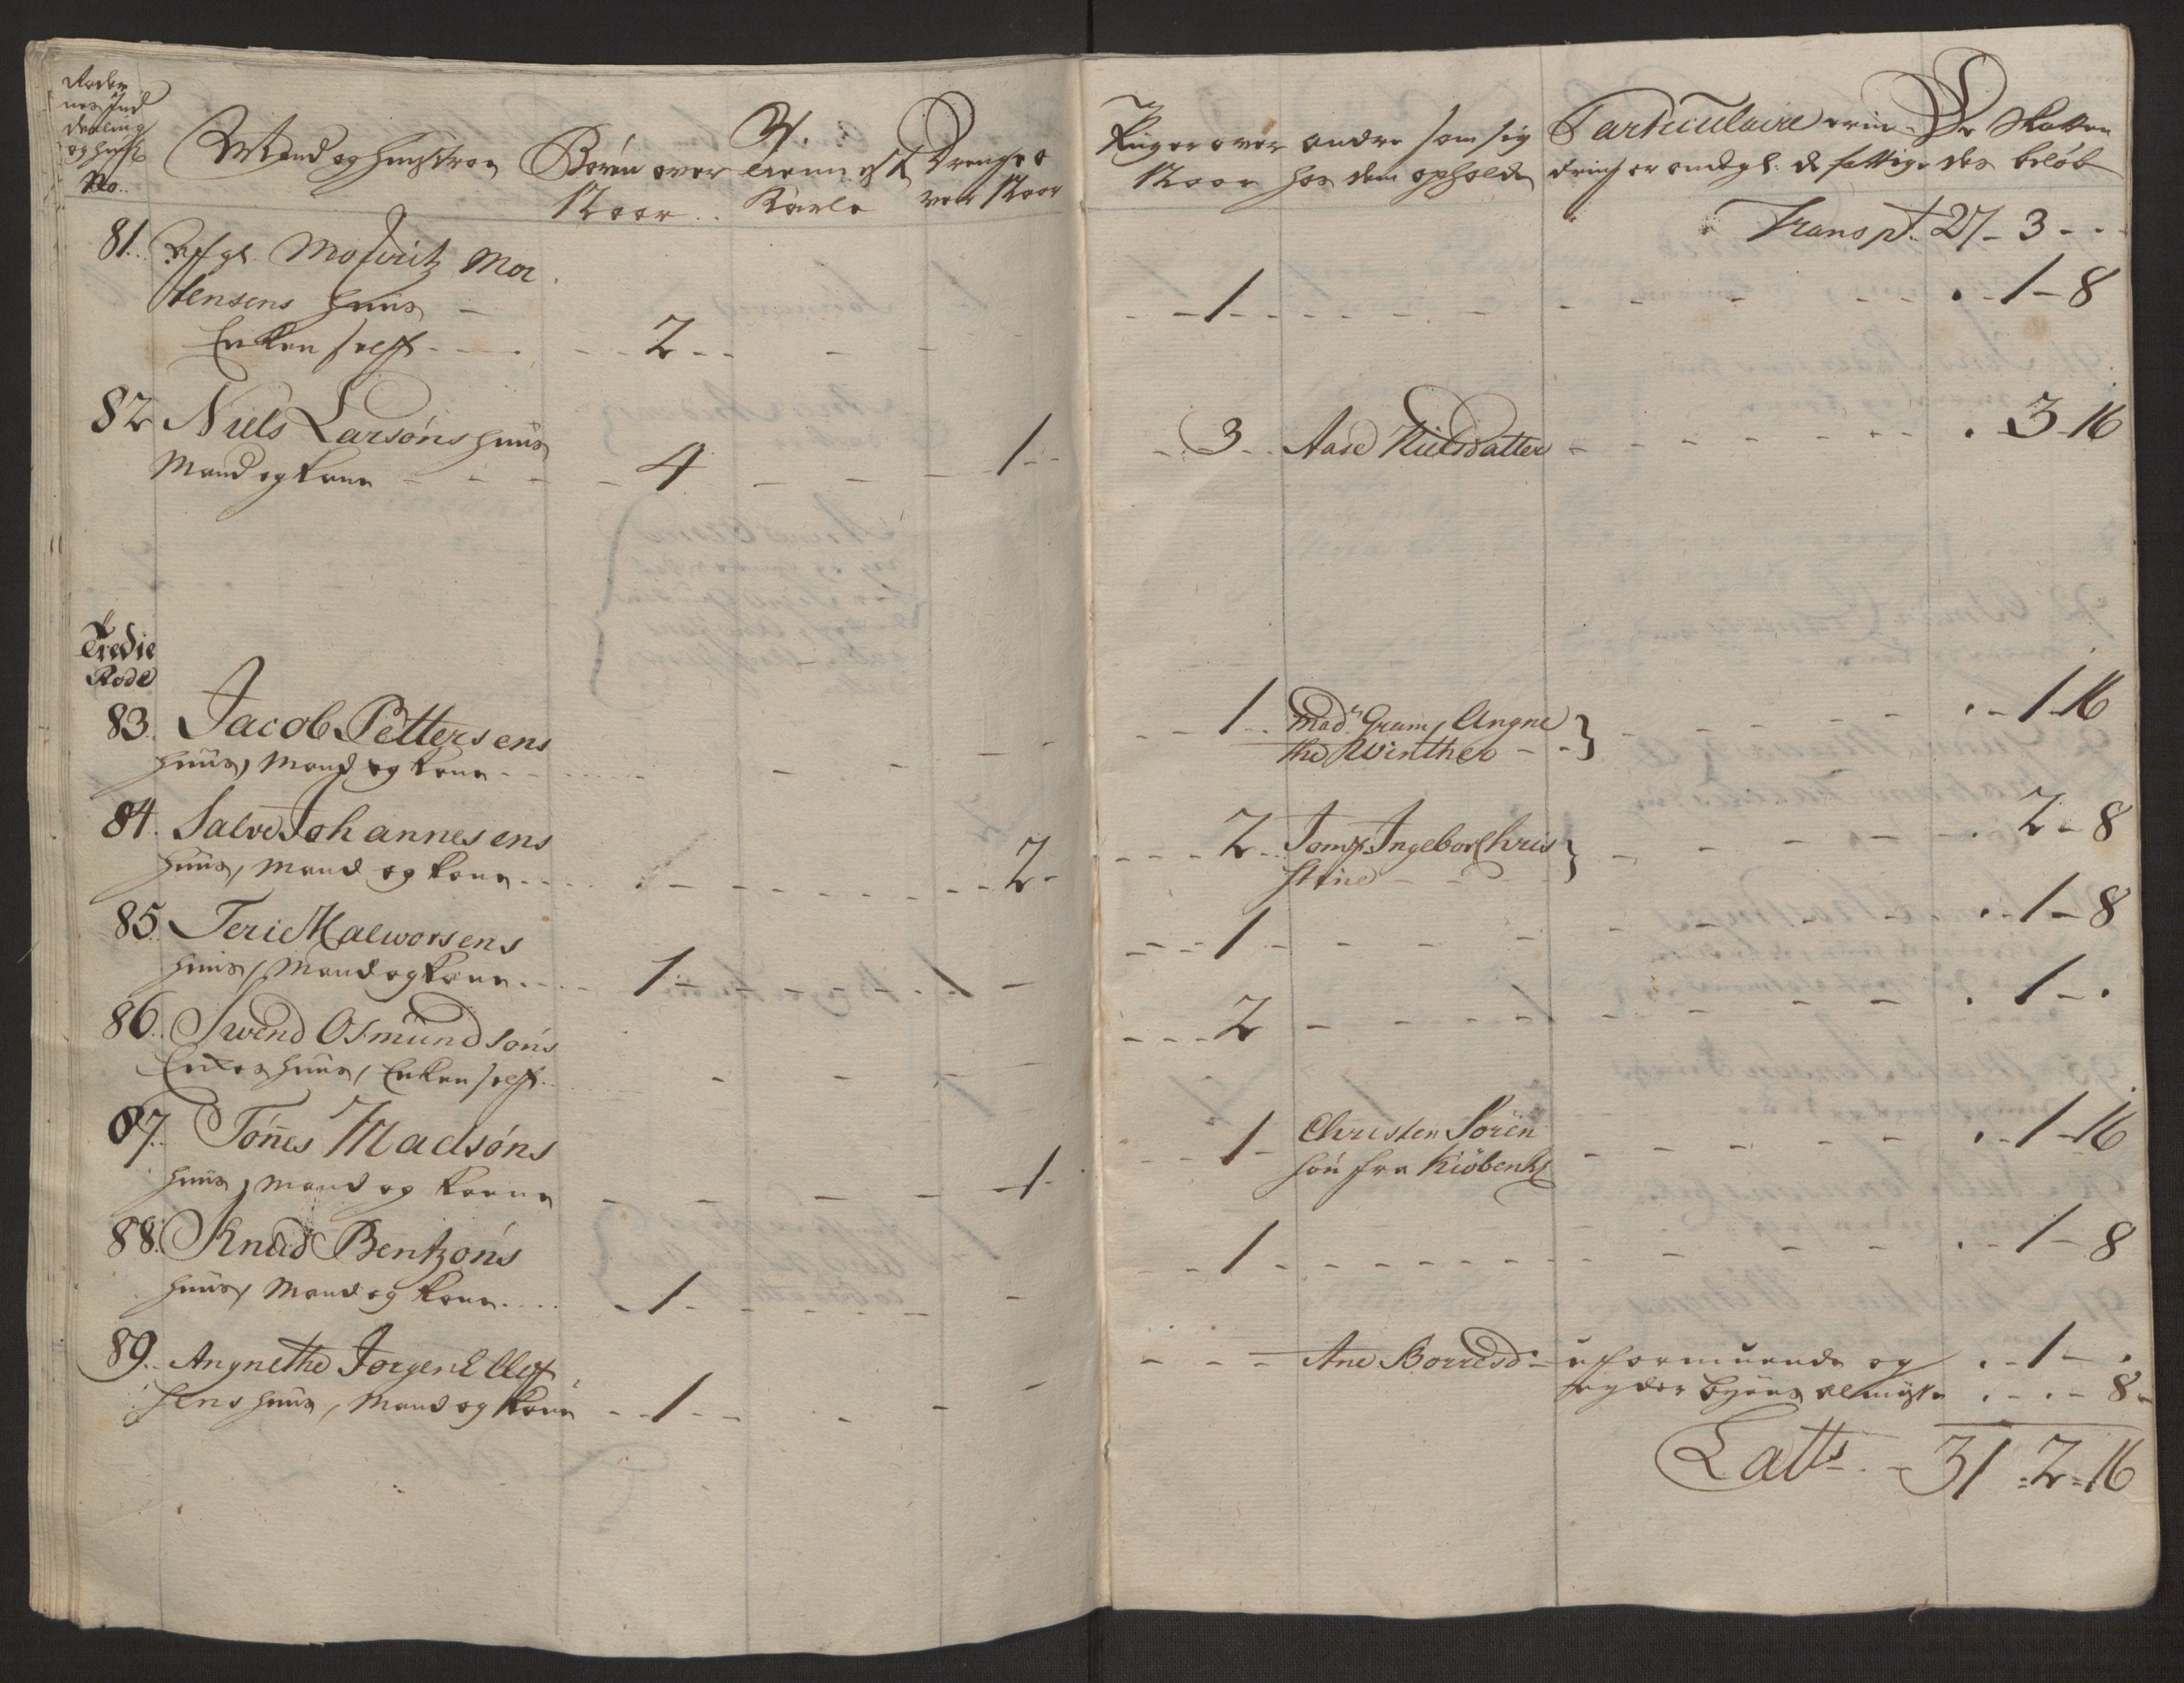 Roder
nes Ind
deeling
og Huus
No.
Mand og Hustroe
Börn over
12 Aar
Tienniste
Karle
Drenge o
ver 12 Aar
Piiger over
12 Aar
andre som sig
hos dem opholde
Particulaire erin
dringer omdgl. de fattige
De Skatten
des beløb
Transpt. 27 - 3 - -
81. Afgl. Mouritz Mor
tensens Huus
Enken self - - 2 - - 1 - - 1 - 8
82 Niels Larsöns Huus
Mand og Kone - - 4 - - 1 - - 3 - Aase Nielsdatter - - 3 - 16
Tredie
Rode
83. Jacob Pettersens
Huus, Mand og Kone - - 1 - Madm Gram, Angne
the Winther - - } - - 1 - 16
84. Salve Johannesens
Huus, Mand og Kone - - 2 - - 2 - Jomf. Ingebor Chris
stine - - } - - 2 - 8
85. Teric Halworsens
Huus, Mand og Kone - - 1 - - 1 - - 1 - 8
86. Swend Osmundsöns
Enkes Huus, Enken self - - 2 - - 1 - -
87. Tönnes Madsöns
Huus, Mand og Kone - - 1 - - 1 - Christen Sören
sön fra Kiöbenh - - 1 - 16
88. Knud Bentzöns
Huus, Mand og Kone - - 1 - - 1 - - 1 - 8
89. Angnethe Jørgen Ellef
sens Huus, Mand og Kone - - 1 - - Ane Borresd. - uformuende og - - 1 - -
nyder byens almisse - - 8 -
Latts - 31 - 2 - 16